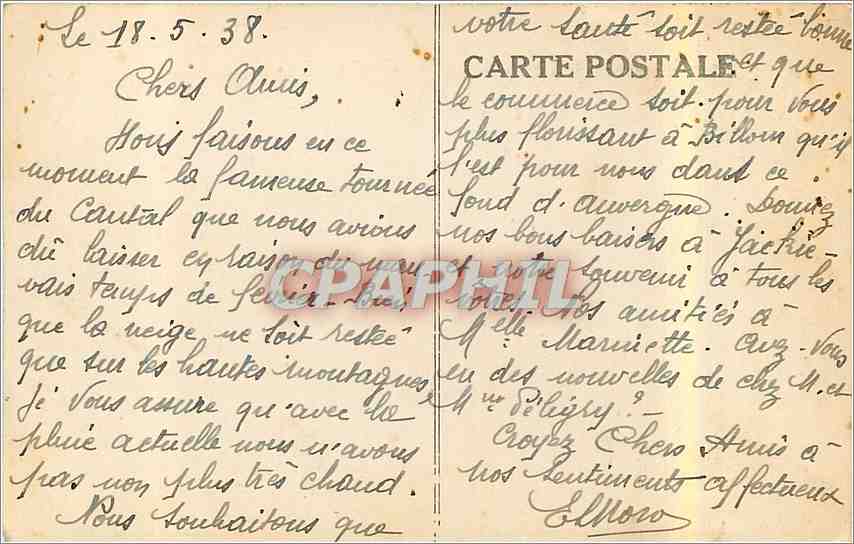 Le 18.5.38.
Chers Amis,
Nous faisons en ce
moment la fameuse tournée
du Cantal que nous avions
dû laisser en raison du mau
vais temps de février. Bien
que la neige ne soit restée
que sur les hautes montagnes
je vous assure qu'avec la
pluie actuelle nous n'avons
pas non plus très chaud.
Nous souhaitons que
votre santé soit restée bonne
CARTE POSTALE
et que
le commerce soit pour vous
plus florissant à Billom qu'il
l'est pour nous dans ce
fond d'Auvergne. Donnez
nos bons baisers à Jackie
et notre souvenir à tous les
vôtres. Nos amitiés à
Melle Mariette. Avez-vous
eu des nouvelles de chez M. et
Mme Péligry?
Croyez Chers Amis à
nos sentiments affectueux
CPAPHIL